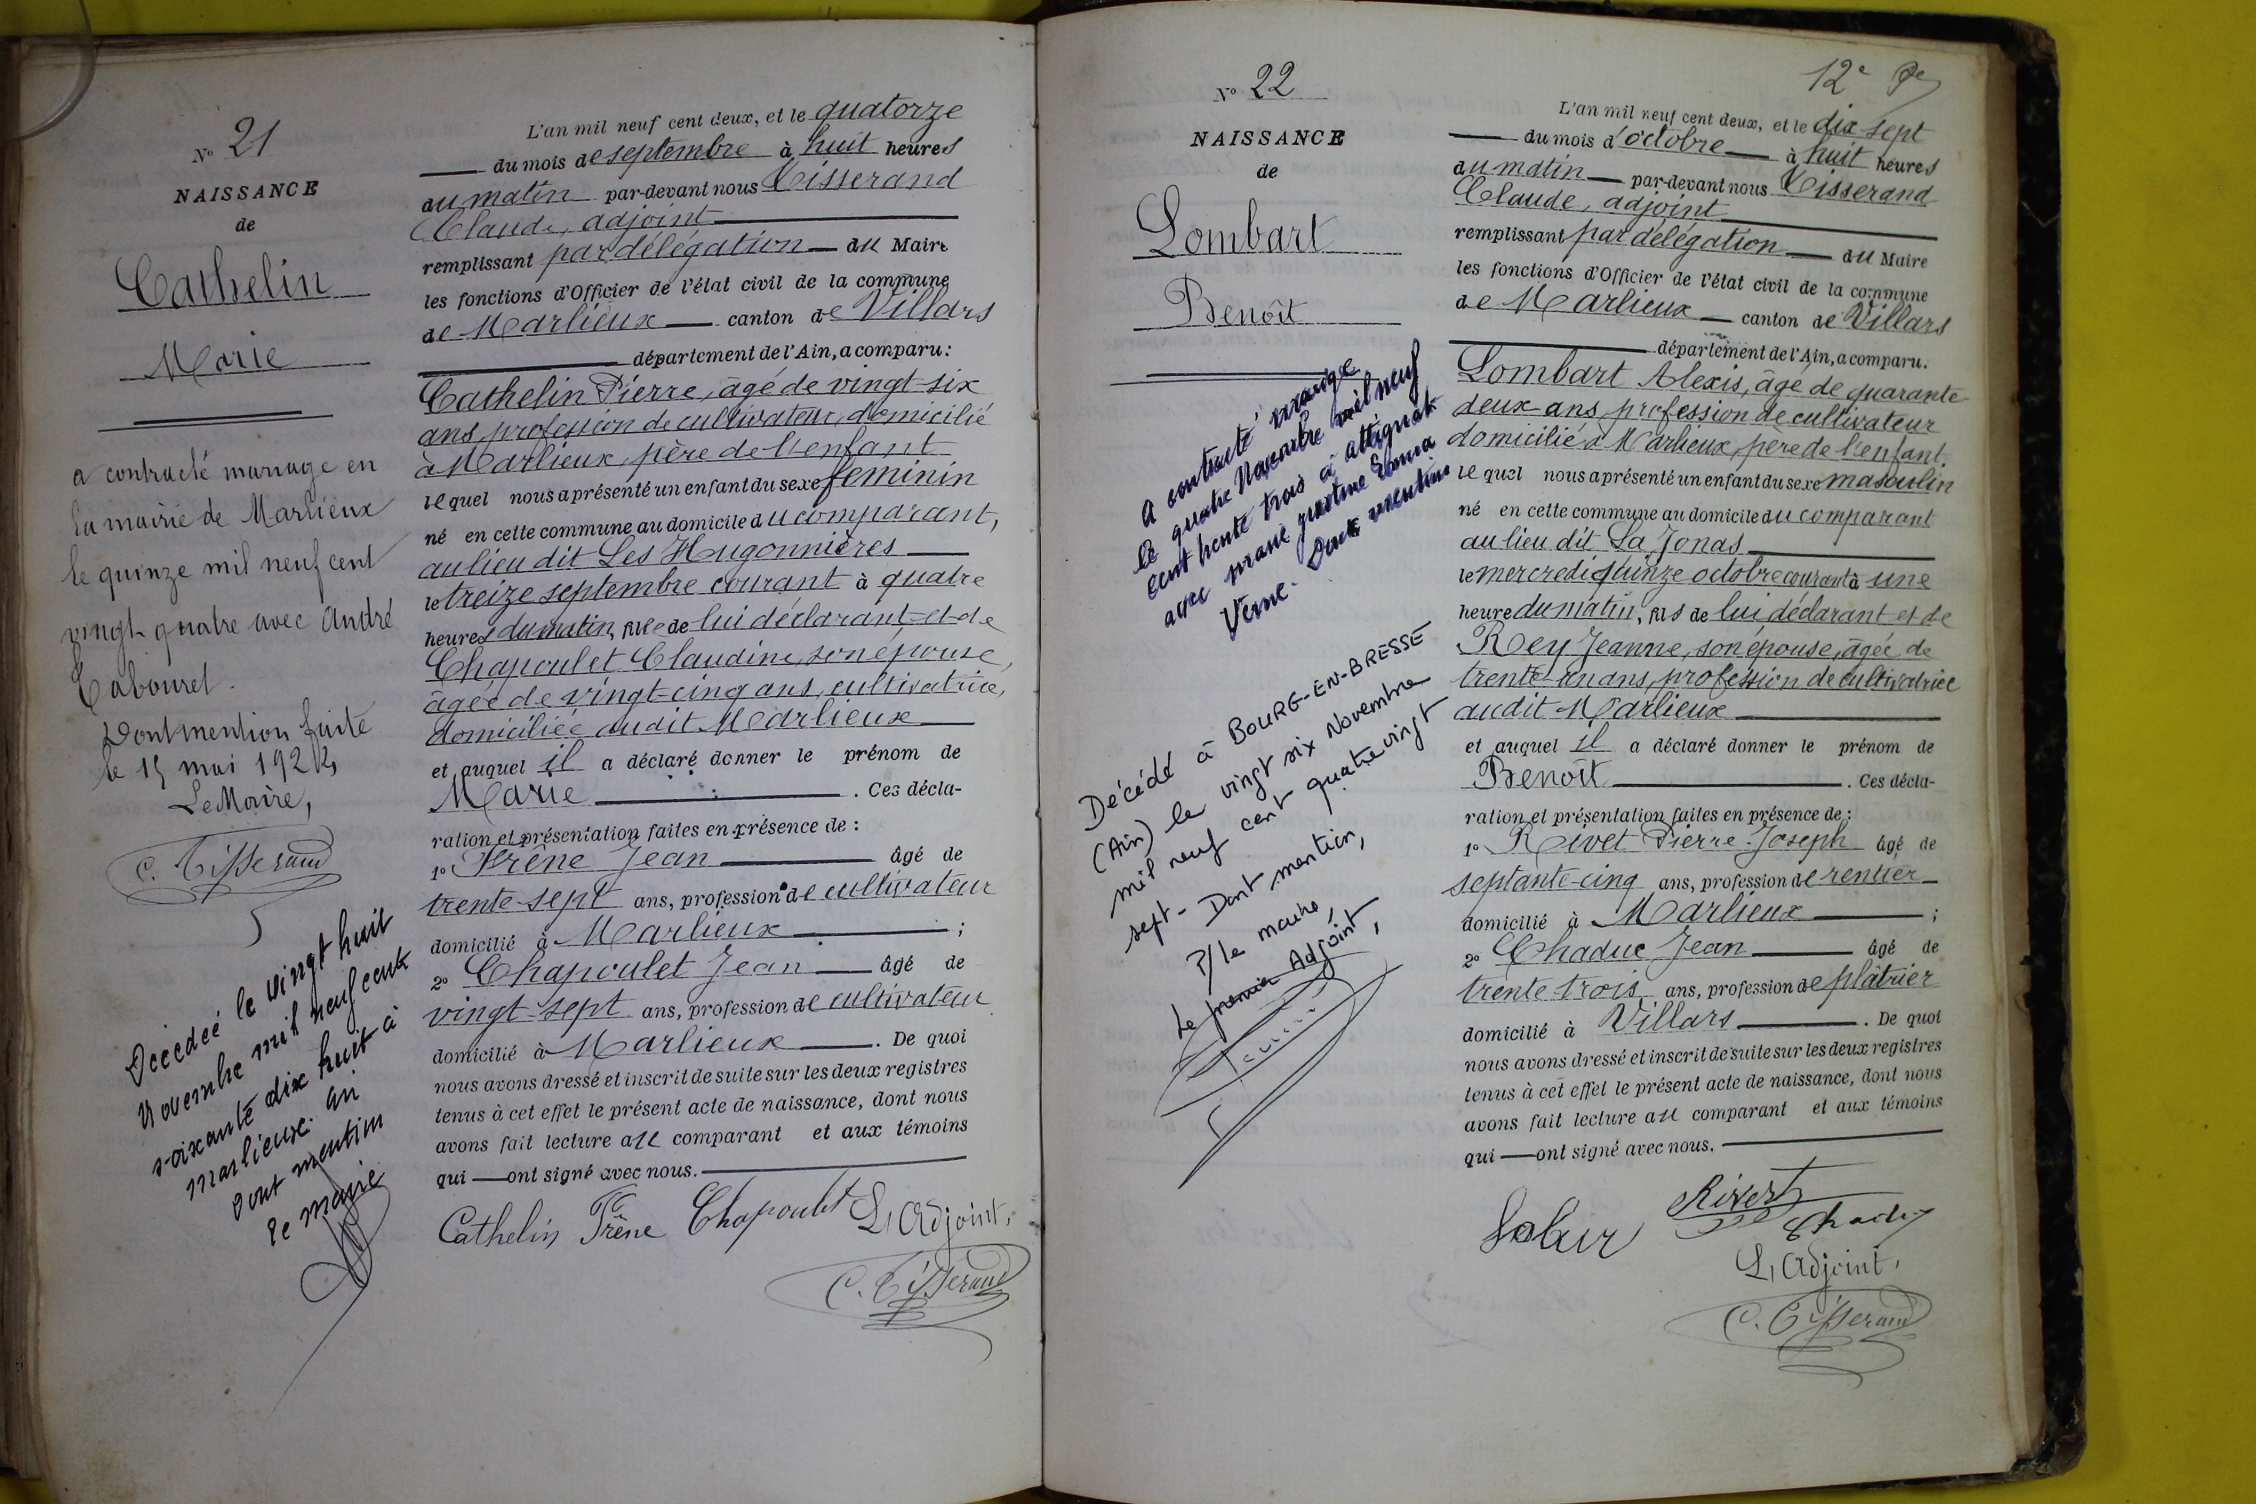 N° 21
NAISSANCE
de
Cathelin
Marie
a contracté mariage en
la mairie de Marlieux
le quinze mil neuf cent
vingt-quatre avec André
Tabouret.
Dont mention faite
le 15 mai 1924
Le Maire,
C. Tisserand
Décédée le vingt huit
novembre mil neuf cent
soixante dix huit à
Marlieux. Ain
Dont mention
le maire
L'an mil neuf cent deux, et le quatorze
du mois de septembre à huit heures
du matin par-devant nous Tisserand
Claude, adjoint
remplissant par délégation du Maire
les fonctions d'Officier de l'état civil de la commune
de Marlieux canton de Villars
département de l'Ain, a comparu:
Cathelin Pierre, âgé de vingt-six
ans, profession de cultivateur, domicilié
à Marlieux, père de l'enfant
lequel nous a présenté un enfant du sexe féminin
né en cette commune au domicile du comparant,
au lieu dit Les Hugonnières
le treize septembre courant à quatre
heures du matin, fille de lui déclarant et de
Chapoulet Claudine, son épouse,
âgée de vingt-cinq ans, cultivatrice,
domiciliée audit Marlieux
et auquel il a déclaré donner le prénom de
Marie . Ces décla-
ration et présentation faites en présence de :
1° Frène Jean âgé de
trente-sept ans, profession de cultivateur
domicilié à Marlieux ;
2° Chapoulet Jean âgé de
vingt-sept ans, profession de cultivateur
domicilié à Marlieux . De quoi
nous avons dressé et inscrit de suite sur les deux registres
tenus à cet effet le présent acte de naissance, dont nous
avons fait lecture au comparant et aux témoins
qui ont signé avec nous.
Cathelin Frène Chapoulet L'Adjoint,
C. Tisserand
12e
N° 22
NAISSANCE
de
Lombart
Benoît
A contracté mariage
le quatre Novembre mil neuf
cent trente trois à Attignat
avec Marie Justine Emma
Verne. Dont mention
Décédé à BOURG-EN-BRESSE
(Ain) le vingt six Novembre
mil neuf cent quatre vingt
sept - Dont mention,
P/le maire,
Le premier Adjoint,
L'an mil neuf cent deux, et le dix-sept
du mois d'octobre à huit heures
du matin par-devant nous Tisserand
Claude, adjoint
remplissant par délégation du Maire
les fonctions d'Officier de l'état civil de la commune
de Marlieux canton de Villars
département de l'Ain, a comparu.
Lombart Alexis, âgé de quarante-
deux ans, profession de cultivateur
domicilié à Marlieux, père de l'enfant.
lequel nous a présenté un enfant du sexe masculin
né en cette commune au domicile du comparant
au lieu dit La Jonas
le mercredi quinze octobre courant à une
heure du matin, fils de lui déclarant et de
Rey Jeanne, son épouse, âgée de
trente-un ans, profession de cultivatrice
audit Marlieux
et auquel il a déclaré donner le prénom de
Benoît . Ces décla-
ration et présentation faites en présence de :
1° Rivet Pierre-Joseph âgé de
septante-cinq ans, profession de rentier
domicilié à Marlieux ;
2° Chaduc Jean âgé de
trente-trois ans, profession de plâtrier
domicilié à Villars . De quoi
nous avons dressé et inscrit de suite sur les deux registres
tenus à cet effet le présent acte de naissance, dont nous
avons fait lecture au comparant et aux témoins
qui ont signé avec nous.
Rivet
Chaduc
L'Adjoint,
C. Tisserand